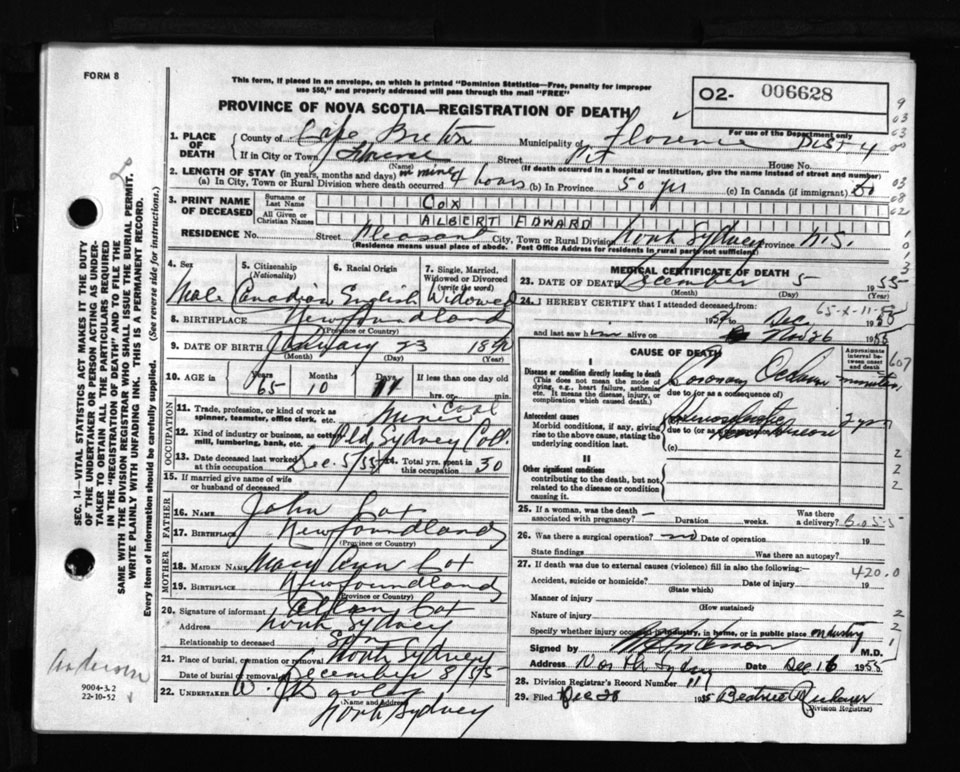 FORM 8
This form, if placed in an envelope, on which is printed "Dominion Statistics—Free, penalty for improper
use $50," and properly addressed will pass through the mail "FREE"
PROVINCE OF NOVA SCOTIA—REGISTRATION OF DEATH
O2- 006628
For use of the Department only
1. PLACE OF DEATH
County of Cape Breton Municipality of Florence DIST 4
If in City or Town Florence Street Pit House No.
(Name) (If death occurred in a hospital or institution, give the name instead of street and number)
2. LENGTH OF STAY (in years, months and days) in mine
(a) In City, Town or Rural Division where death occurred 4 hours (b) In Province 50 yrs (c) In Canada (if immigrant) 50
3. PRINT NAME OF DECEASED
Surname or Last Name COX
All Given or Christian Names ALBERT EDWARD
RESIDENCE No. Street Pleasant City, Town or Rural Division North Sydney Province N.S.
(Residence means usual place of abode. Post Office Address for residents in rural parts not sufficient)
4. Sex Male
5. Citizenship (Nationality) Canadian
6. Racial Origin English
7. Single, Married, Widowed or Divorced (write the word) Widowed
8. BIRTHPLACE Newfoundland
(Province or Country)
9. DATE OF BIRTH January 23
(Month) (Day) (Year)
10. AGE in Years 65 Months 10 Days 11 If less than one day old
hrs. or min.
OCCUPATION
11. Trade, profession, or kind of work as spinner, teamster, office clerk, etc. Coal Miner
12. Kind of industry or business, as cotton mill, lumbering, bank, etc. Old Sydney Coll.
13. Date deceased last worked at this occupation Dec. 5/55 14. Total yrs. spent in this occupation 30
15. If married give name of wife or husband of deceased
FATHER
16. NAME John Cox
17. BIRTHPLACE Newfoundland
(Province or Country)
MOTHER
18. MAIDEN NAME Mary Ann Cox
19. BIRTHPLACE Newfoundland
(Province or Country)
20. Signature of informant Cox
Address North Sydney
Relationship to deceased Son
21. Place of burial, cremation or removal North Sydney
Date of burial or removal December 8/55
22. UNDERTAKER W. J.
(Name and Address)
North Sydney
MEDICAL CERTIFICATE OF DEATH
23. DATE OF DEATH December 5 1955
(Month) (Day) (Year)
24. I HEREBY CERTIFY that I attended deceased from:
65-X-11-55
and last saw h im alive on Nov 26 1955
CAUSE OF DEATH
Approximate interval between onset and death
I
Disease or condition directly leading to death
(This does not mean the mode of dying, e.g., heart failure, asthenia etc. It means the disease, injury, or complication which caused death.)
Coronary minutes
due to (or as a consequence of)
Antecedent causes
Morbid conditions, if any, giving rise to the above cause, stating the underlying condition last.
2 yrs
(c)
II
Other significant conditions
contributing to the death, but not related to the disease or condition causing it.
25. If a woman, was the death associated with pregnancy? — Duration weeks. Was there a delivery?
26. Was there a surgical operation? no Date of operation 19
State findings Was there an autopsy?
27. If death was due to external causes (violence) fill in also the following:—
420.0
Accident, suicide or homicide? Date of injury 19
(State which)
Manner of injury
(How sustained)
Nature of injury
Specify whether injury occurred in industry, in home, or in public place industry
Signed by M.D.
Address North Sydney Date Dec 16 1955
28. Division Registrar's Record Number 117
29. Filed Dec 28 1955 Beatrice
(Division Registrar)
SEC. 14—VITAL STATISTICS ACT MAKES IT THE DUTY
OF THE UNDERTAKER OR PERSON ACTING AS UNDER-
TAKER TO OBTAIN ALL THE PARTICULARS REQUIRED
IN THE "REGISTRATION OF DEATH" AND TO FILE THE
SAME WITH THE DIVISION REGISTRAR WHO SHALL ISSUE THE BURIAL PERMIT.
WRITE PLAINLY WITH UNFADING INK. THIS IS A PERMANENT RECORD.
Every item of information should be carefully supplied. (See reverse side for instructions.)
Anderson
9004-3.2
22-10-52